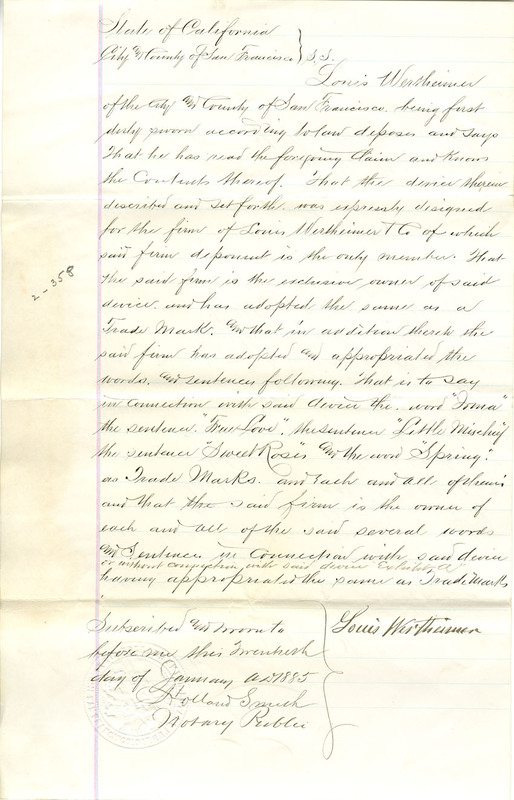 State of California
City and County of San Francisco } S.S.
Louis Wertheimer
of the City and County of San Francisco. being first
duly sworn according to law deposes and says
That he has read the foregoing Claim and knows
the Contents thereof. That the device therein
described and set forth was expressly designed
for the firm of Louis Wertheimer & Co of which
said firm deponent is the only member. That
the said firm is the exclusive owner of said
device. and has adopted the same as a
Trade Mark. and that in addition thereto the
said firm has adopted and appropriated the
words. and sentences following. That is to say
in Connection with said device the word
the sentence "True Love". the sentence "Little Mischief"
the sentence "Sweet Rose" and the word "Spring".
as Trade Marks. and Each and all of them
and that the said firm is the owner of
each and all of the said several words
and Sentences in Connection with said device
or without connection with said device "Exhibit A"
having appropriated the same as Trade Marks
Subscribed and sworn to
before me this Twentieth
day of January AD 1885
Holland Smith
Notary Public
Louis Wertheimer
2-358